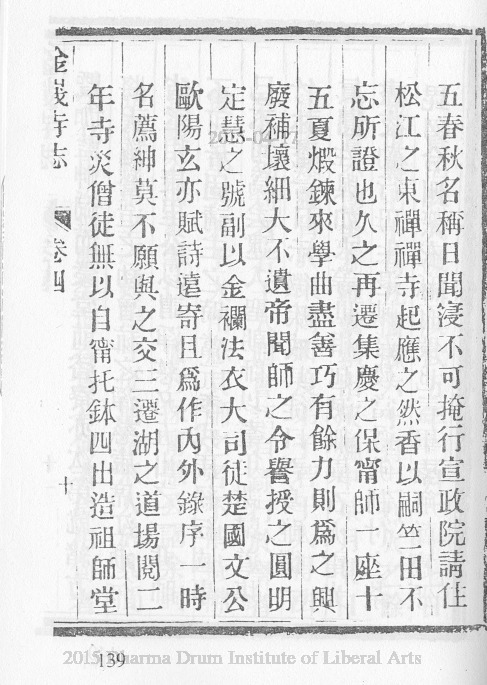 五春秋名稱日聞寖不可掩行宣政院請住
松江之東禪禪寺起應之然香以嗣竺田不
忘所證也久之再遷集慶之保甯師一座十
五夏煅鍊來學曲盡善巧有餘力則爲之興
廢補壞細大不遺帝聞師之令譽授之圓明
定慧之號副以金襴法衣大司徒楚國文公
歐陽玄亦賦詩遠寄且爲作內外錄序一時
名薦紳莫不願與之交三遷湖之道場閱二
年寺災僧徒無以自甯托鉢四出造祖師堂
寺志 卷四 十
139
2015 Dharma Drum Institute of Liberal Arts